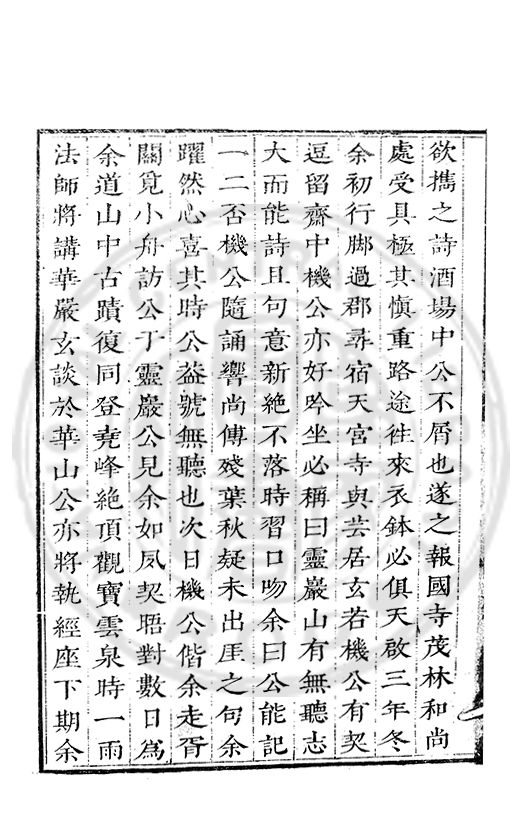 欲攜之詩酒場中公不屑也遂之報國寺茂林和尚
處受具極其慎重路途往來衣鉢必俱天啟三年冬
余初行脚過郡尋宿天宮寺與芸居玄若機公有契
逗留齋中機公亦好吟坐必稱曰靈巖山有無聽志
大而能詩且句意新絶不落時習口吻余曰公能記
一二否機公隨誦響尚傳殘葉秋疑未出厓之句余
躍然心喜其時公益號無聽也次日機公偕余走胥
關覓小舟訪公于靈巖公見余如夙契晤對數日爲
余道山中古蹟復同登堯峰絶頂觀寶雲泉時一雨
法師將講華嚴玄談於華山公亦將執經座下期余